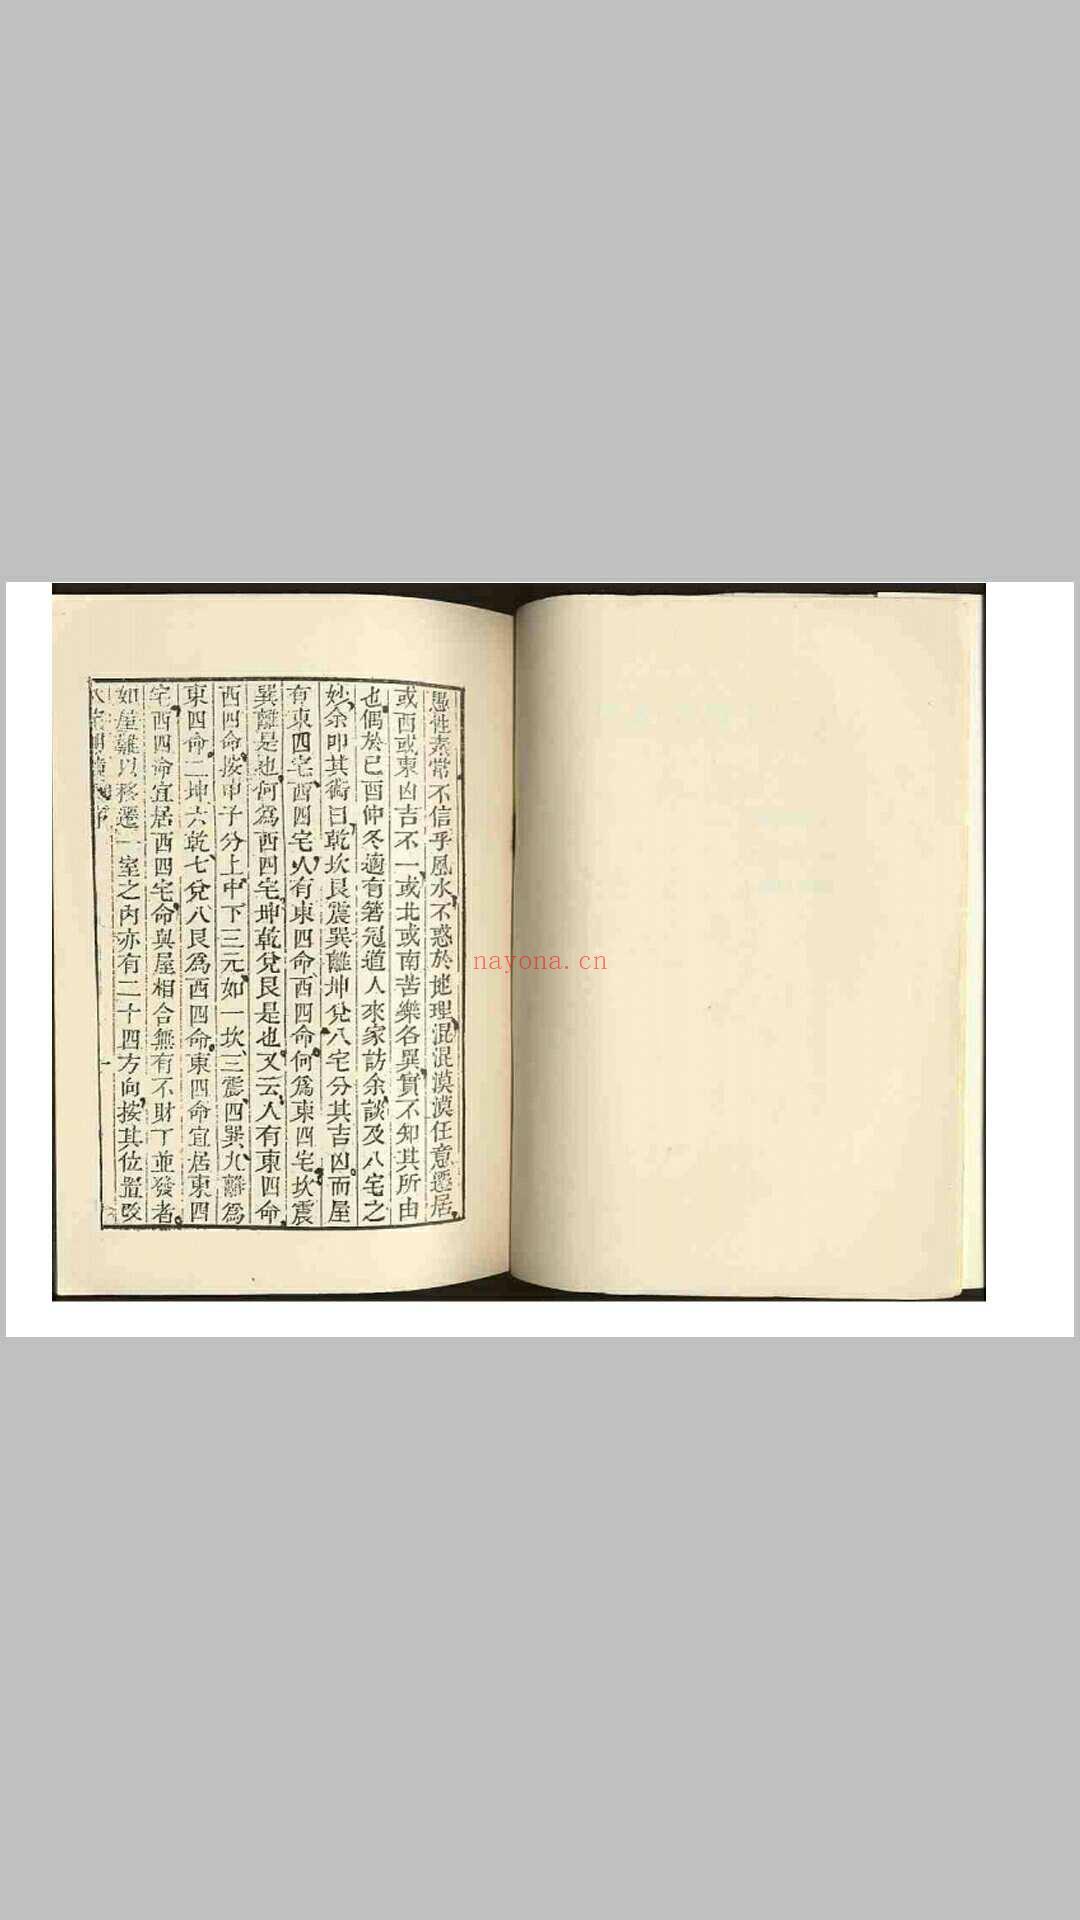 愚性素常不信乎風水、不惑於地理、混混漠漠任意遷居、
或西或東凶吉不一、或北或南苦樂各異、實不知其所由
也、偶於已酉仲冬適有箬冠道人來家訪余、談及八宅之
妙、余叩其術曰、乾坎艮震巽離坤兌八宅分其吉凶。而屋
有東四宅、西四宅、人有東四命、西四命。何爲東四宅、坎震
巽離是也、何爲西四宅、坤乾兌艮是也。又云、人有東四命、
西四命、按甲子分上中下三元、如一坎、三震、四巽、九離爲
東四命。二坤六乾、七兌八艮爲西四命。東四命宜居東四
宅、西四命宜居西四宅、命與屋相合無有不財丁並發者。
如屋難以移遷一室之內亦有二十四方向、按其位置改
八宅明鏡 序 一
nayona.cn